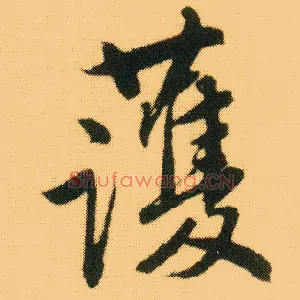 護
Shufawang.CN